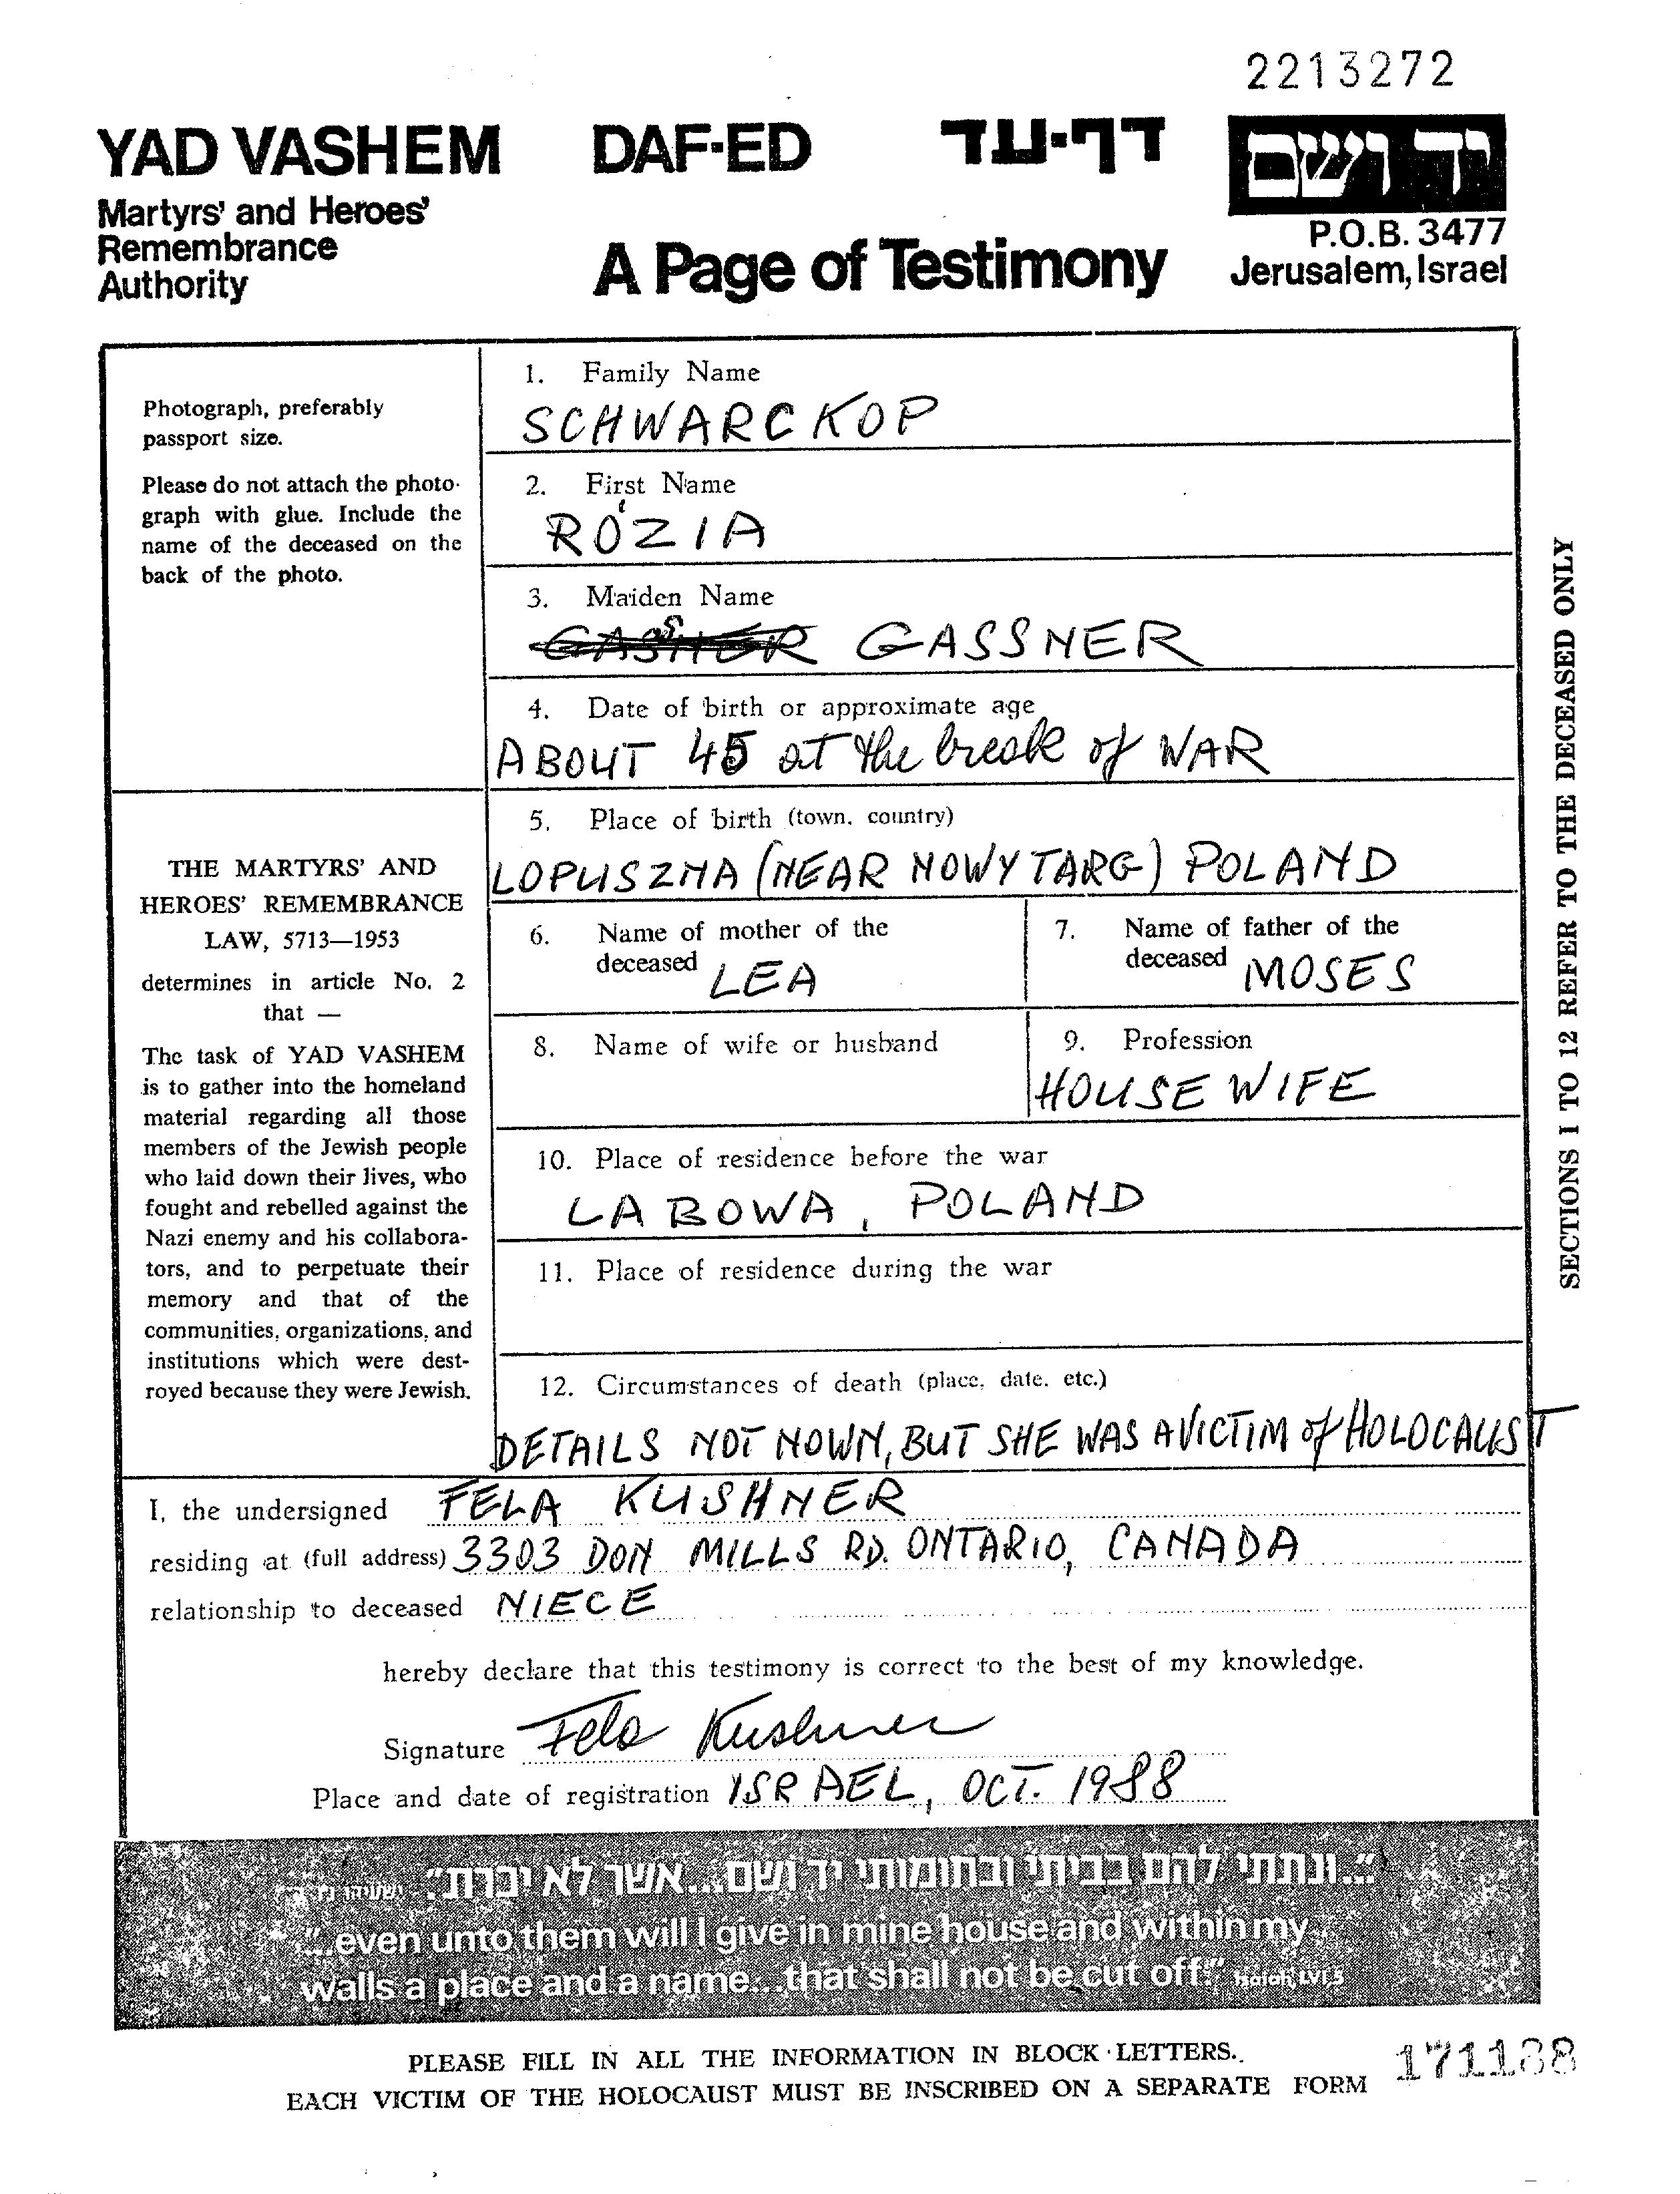 2213272
YAD VASHEM DAF-ED דף-עד יד ושם
Martyrs' and Heroes'
Remembrance
Authority
A Page of Testimony
P.O.B. 3477
Jerusalem, Israel
Photograph, preferably
passport size.
Please do not attach the photo-
graph with glue. Include the
name of the deceased on the
back of the photo.
THE MARTYRS' AND
HEROES' REMEMBRANCE
LAW, 5713—1953
determines in article No. 2
that —
The task of YAD VASHEM
is to gather into the homeland
material regarding all those
members of the Jewish people
who laid down their lives, who
fought and rebelled against the
Nazi enemy and his collabora-
tors, and to perpetuate their
memory and that of the
communities, organizations, and
institutions which were dest-
royed because they were Jewish.
1. Family Name
SCHWARCKOP
2. First Name
RÓZIA
3. Maiden Name
GASSNER
4. Date of birth or approximate age
ABOUT 45 at the break of WAR
5. Place of birth (town, country)
LOPUSZNA (NEAR NOWY TARG) POLAND
6. Name of mother of the
deceased LEA
7. Name of father of the
deceased MOSES
8. Name of wife or husband
9. Profession
HOUSE WIFE
10. Place of residence before the war
LABOWA, POLAND
11. Place of residence during the war
12. Circumstances of death (place, date, etc.)
DETAILS NOT NOWN, BUT SHE WAS A VICTIM of HOLOCAUST
SECTIONS 1 TO 12 REFER TO THE DECEASED ONLY
I, the undersigned FELA KUSHNER
residing at (full address) 3303 DON MILLS RD. ONTARIO, CANADA
relationship to deceased NIECE
hereby declare that this testimony is correct to the best of my knowledge.
Signature Fela Kushner
Place and date of registration ISRAEL, OCT. 1988
"...ונתתי להם בביתי ובחומותי יד ושם...אשר לא יכרת."
"...even unto them will I give in mine house and within my
walls a place and a name...that shall not be cut off." Isaiah LVI 5
PLEASE FILL IN ALL THE INFORMATION IN BLOCK LETTERS.
EACH VICTIM OF THE HOLOCAUST MUST BE INSCRIBED ON A SEPARATE FORM
171188